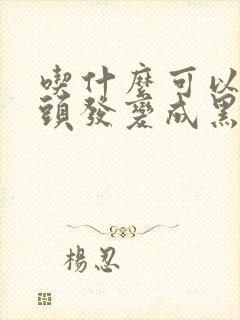 喫什麼可以
頭發變成黑
楊忍